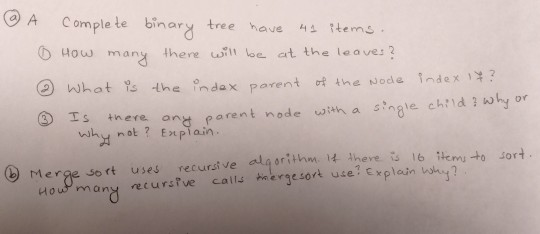 ⓐ A Complete binary tree have 41 items.
① How many there will be at the leaves?
② What is the index parent of the Node index 17?
③ Is there any parent node with a single child? Why or
why not? Explain.
ⓑ Merge sort uses recursive algorithm. If there is 16 items to sort.
How many recursive calls mergesort use? Explain why?